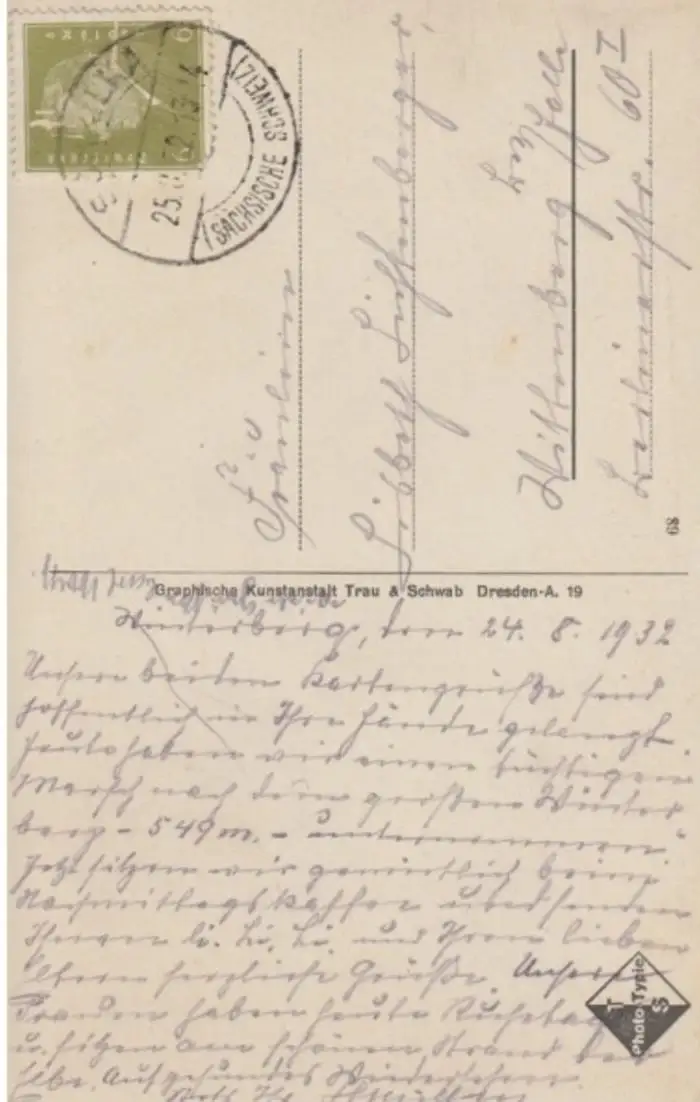 6
25. 32. 13-14
(SÄCHSISCHE SCHWEIZ)
Fräulein
Lisbeth Lichtenberger
Wittenberg
Bez. Halle
60 I
68
Graphische Kunstanstalt Trau & Schwab Dresden-A. 19
Winterberg, den 24. 8. 1932
Unsere beiden Kartengrüße sind
hoffentlich in Ihre Hände gelangt.
Heute haben wir einen tüchtigen
Marsch nach dem großen Winter
berg - 549 m. - unternommen.
Jetzt sitzen wir gemütlich beim
Nachmittagskaffee und senden
Ihnen und Ihren lieben
Eltern herzliche Grüße. Unsere
Frauen haben heute Ruhetag
u. sitzen am schönen Strand der
Elbe. Auf gesundes Wiedersehen
Photo Typie
T S